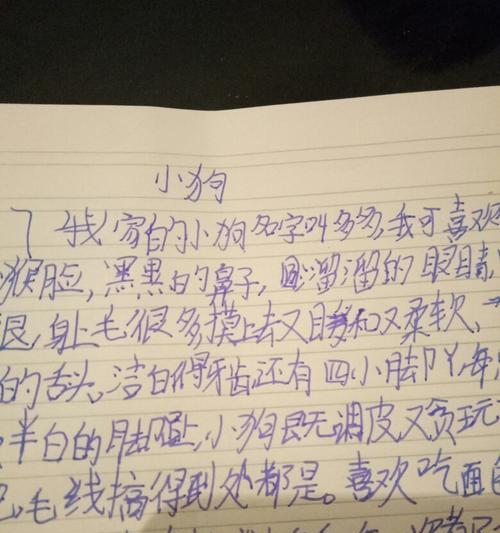 小狗
我家的小狗名字叫多多,我可喜欢
猴脸,黑黑的鼻子,圆溜溜的眼睛
身上毛很多摸上去又暖和又柔软,
的舌头,洁白得牙齿还有四小脚丫,每
半白的脚,小狗既调皮又贪玩
毛线搞得到处都是。喜欢吃面